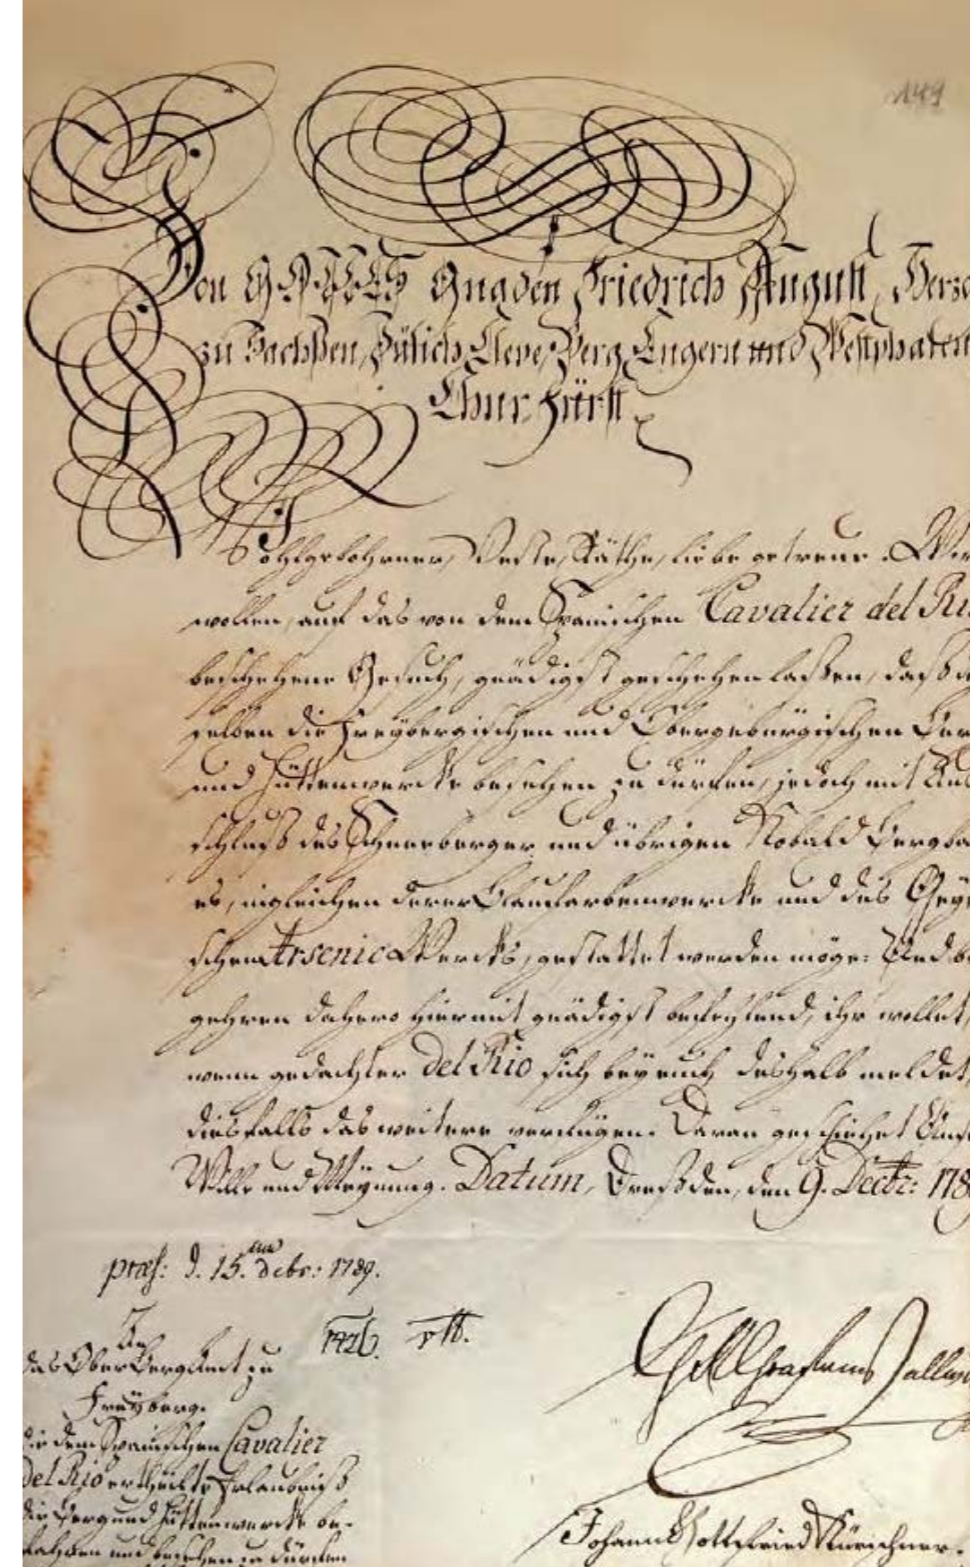 149
Von GOTTES Gnaden Friedrich August, Herzo
zu Sachßen, Jülich, Cleve, Berg, Engern und Westphalen
Chur-Fürst
Wohlgebohrner, Veste, Räthe, liebe getreue. Wir
wollen, auf das von dem Spanischen Cavalier del Rio
beschehene Gesuch, gnädigst geschehen laßen, daß de
selben die Freybergischen und Obergebürgischen Ber
und Hüttenwercke besehen zu dürfen, jedoch mit Aus
schluß des Schneeberger und übrigen Kobald Bergba
es, ingleichen derer Blaufarbenwercke und des Geye
schen Arsenic Wercks, gestattet werden möge. Und be
gehren dahero hiermit gnädigst befehlend, ihr wollet,
wenn gedachter del Rio sich bey euch deshalb meldet,
diesfalls das weitere verfügen. Daran geschiehet Uns
Wille und Meynung. Datum, Dreßden, den 9. Decbr: 178
præs: d. 15. Xbr.: 1789.
An
das OberBergAmt zu
Freyberg.
die dem Spanischen Cavalier
del Rio ertheilte Erlaubniß
die Berg und Hüttenwercke be-
fahren und besehen zu dürfen
Johann Gottfried Kürschner.